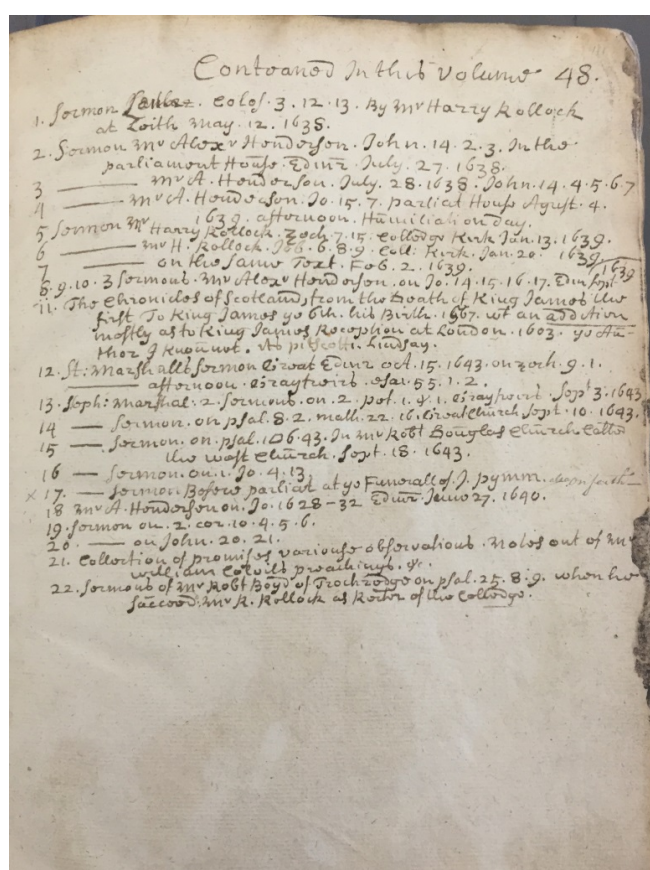 Conteaned In this volume 48.
1. Sermon Colos. 3. 12. 13. By Mr Harry Rollock
at Leith May. 12. 1638.
2. Sermon Mr Alexr Henderson. John. 14. 2. 3. In the
parliament House. Edinr. July. 27. 1638.
3 —— Mr A. Henderson. July. 28. 1638. John. 14. 4. 5. 6. 7
4 —— Mr A. Henderson. Jo. 15. 7. parliat House Agust. 4.
1639. afternoon. Humiliation day.
5 Sermon Mr Harry Rollock. Zech. 7. 15. Colledge Kirk Jan. 13. 1639.
6 —— Mr H. Rollock. Jeb. 6. 8. 9. Coll: Kirk. Jan. 20. 1639
7 —— on the same Text. Feb. 2. 1639.
8. 9. 10. 3 Sermons. Mr Alexr Henderson. on Jo. 14. 15. 16. 17. Edin Sept 1639
11. The Chronicles of Scotland, from the Death of King James the
first To King James ye 6th. his Birth. 1667. wt an addition
mostly as to King James Reception at London. 1603. ye Au-
thor I know not. its pitscott. Lindsay.
12. St: Marshalls Sermon Great Edinr oct. 15. 1643. on zech. 9. 1.
—— afternoon. Grayfreirs. esai. 55. 1. 2.
13. Steph: Marshal. 2. Sermons. on. 2. pet. 1. 4. 1. Grayfreirs. Sept 3. 1643
14 —— Sermon. on psal. 8. 2. math. 22. 16. Great Church Sept. 10. 1643.
15 —— Sermon. on psal. 106. 43. In Mr Robt Douglas Church
the west Church. Sept. 18. 1643.
16 —— Sermon. on. 1. Jo. 4. 13.
x 17. —— Sermon Before parliat at ye Funerall of J. pymm.
18 Mr A. Henderson on. Jo. 16 28-32 Edinr. June 27. 1640.
19. Sermon on. 2. Cor. 10. 4. 5. 6.
20. —— on John. 20. 21.
21. Collection of promises variouse observations. Notes out of Mr
william Colvils preachings. &c.
22. Sermons of Mr Robt Boyd of Trochredge on psal. 25. 8. 9. when he
succeed. Mr R. Rollock as Rector of the Colledge.